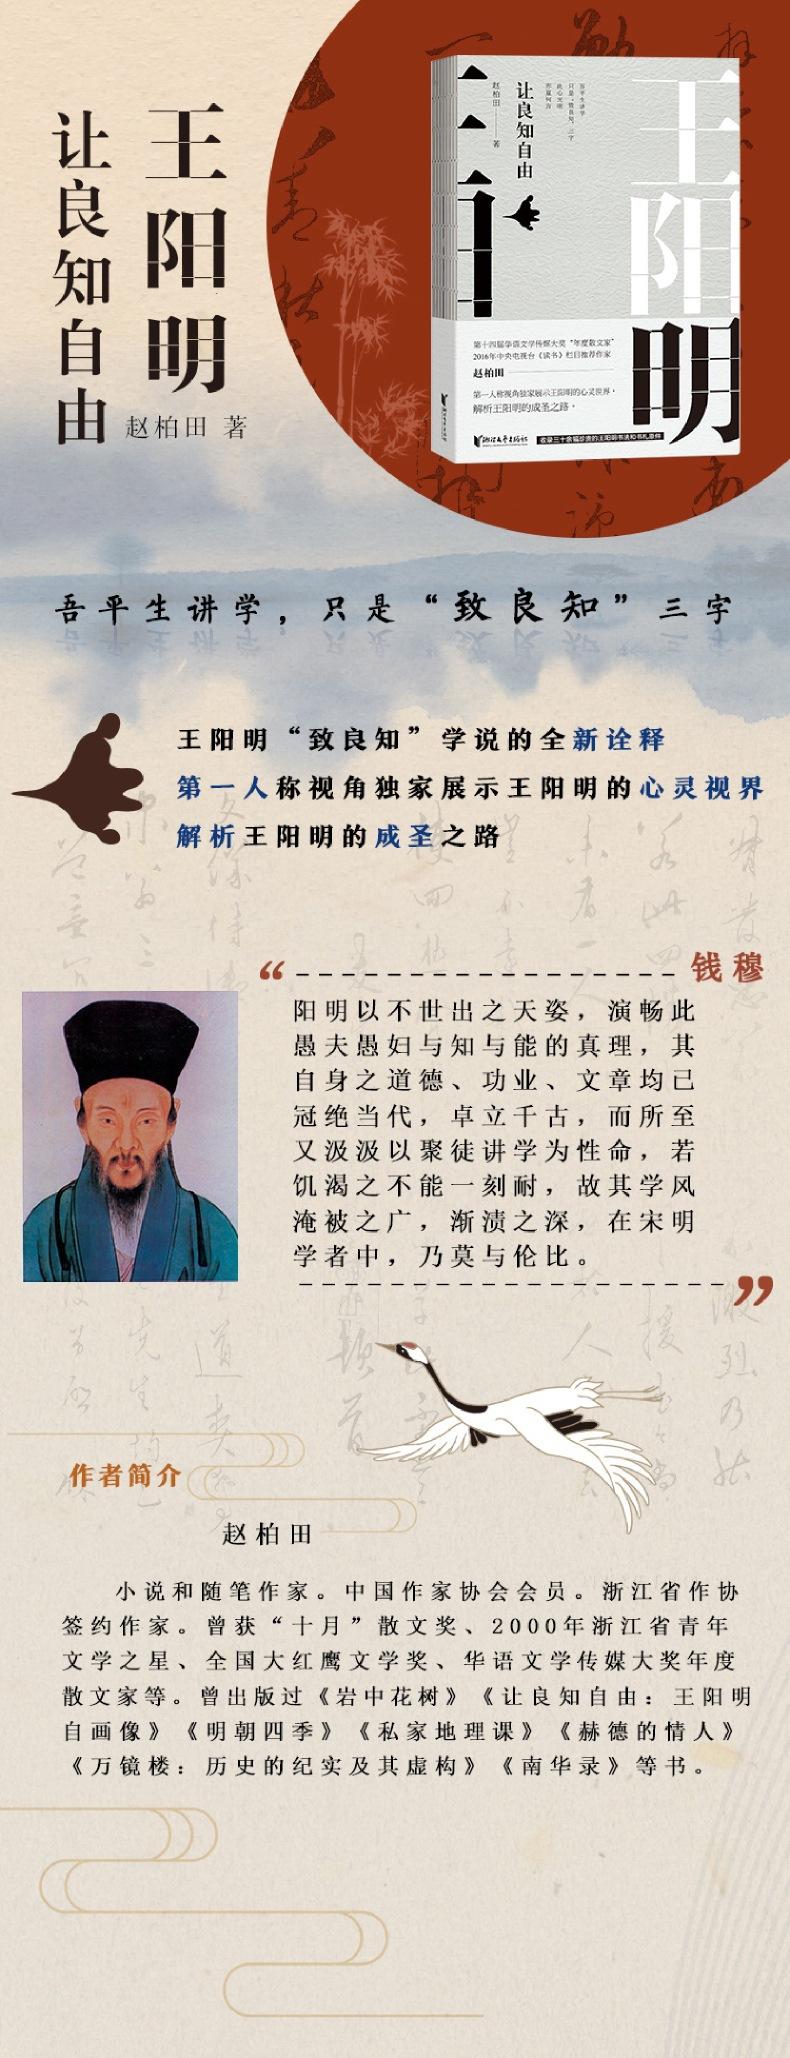 王阳明
让良知自由
赵柏田 著
王阳明
让良知自由
赵柏田 著
吾平生讲学
只是“致良知”三字
此心光明
亦复何言
第十四届华语文学传媒大奖“年度散文家”
2016年中央电视台《读书》栏目推荐作家
赵柏田
第一人称视角独家展示王阳明的心灵世界，
解析王阳明的成圣之路。
浙江文艺出版社
收录三十余幅珍贵的王阳明书法和书札原件
吾平生讲学，只是“致良知”三字
王阳明“致良知”学说的全新诠释
第一人称视角独家展示王阳明的心灵视界
解析王阳明的成圣之路
钱穆
阳明以不世出之天姿，演畅此
愚夫愚妇与知与能的真理，其
自身之道德、功业、文章均已
冠绝当代，卓立千古，而所至
又汲汲以聚徒讲学为性命，若
饥渴之不能一刻耐，故其学风
淹被之广，渐渍之深，在宋明
学者中，乃莫与伦比。
作者简介
赵柏田
小说和随笔作家。中国作家协会会员。浙江省作协
签约作家。曾获“十月”散文奖、2000年浙江省青年
文学之星、全国大红鹰文学奖、华语文学传媒大奖年度
散文家等。曾出版过《岩中花树》《让良知自由：王阳明
自画像》《明朝四季》《私家地理课》《赫德的情人》
《万镜楼：历史的纪实及其虚构》《南华录》等书。